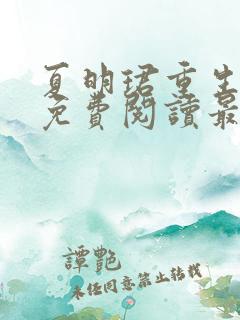 夏明珺重生
免費閱讀最
譚艷
未經同意禁止轉載